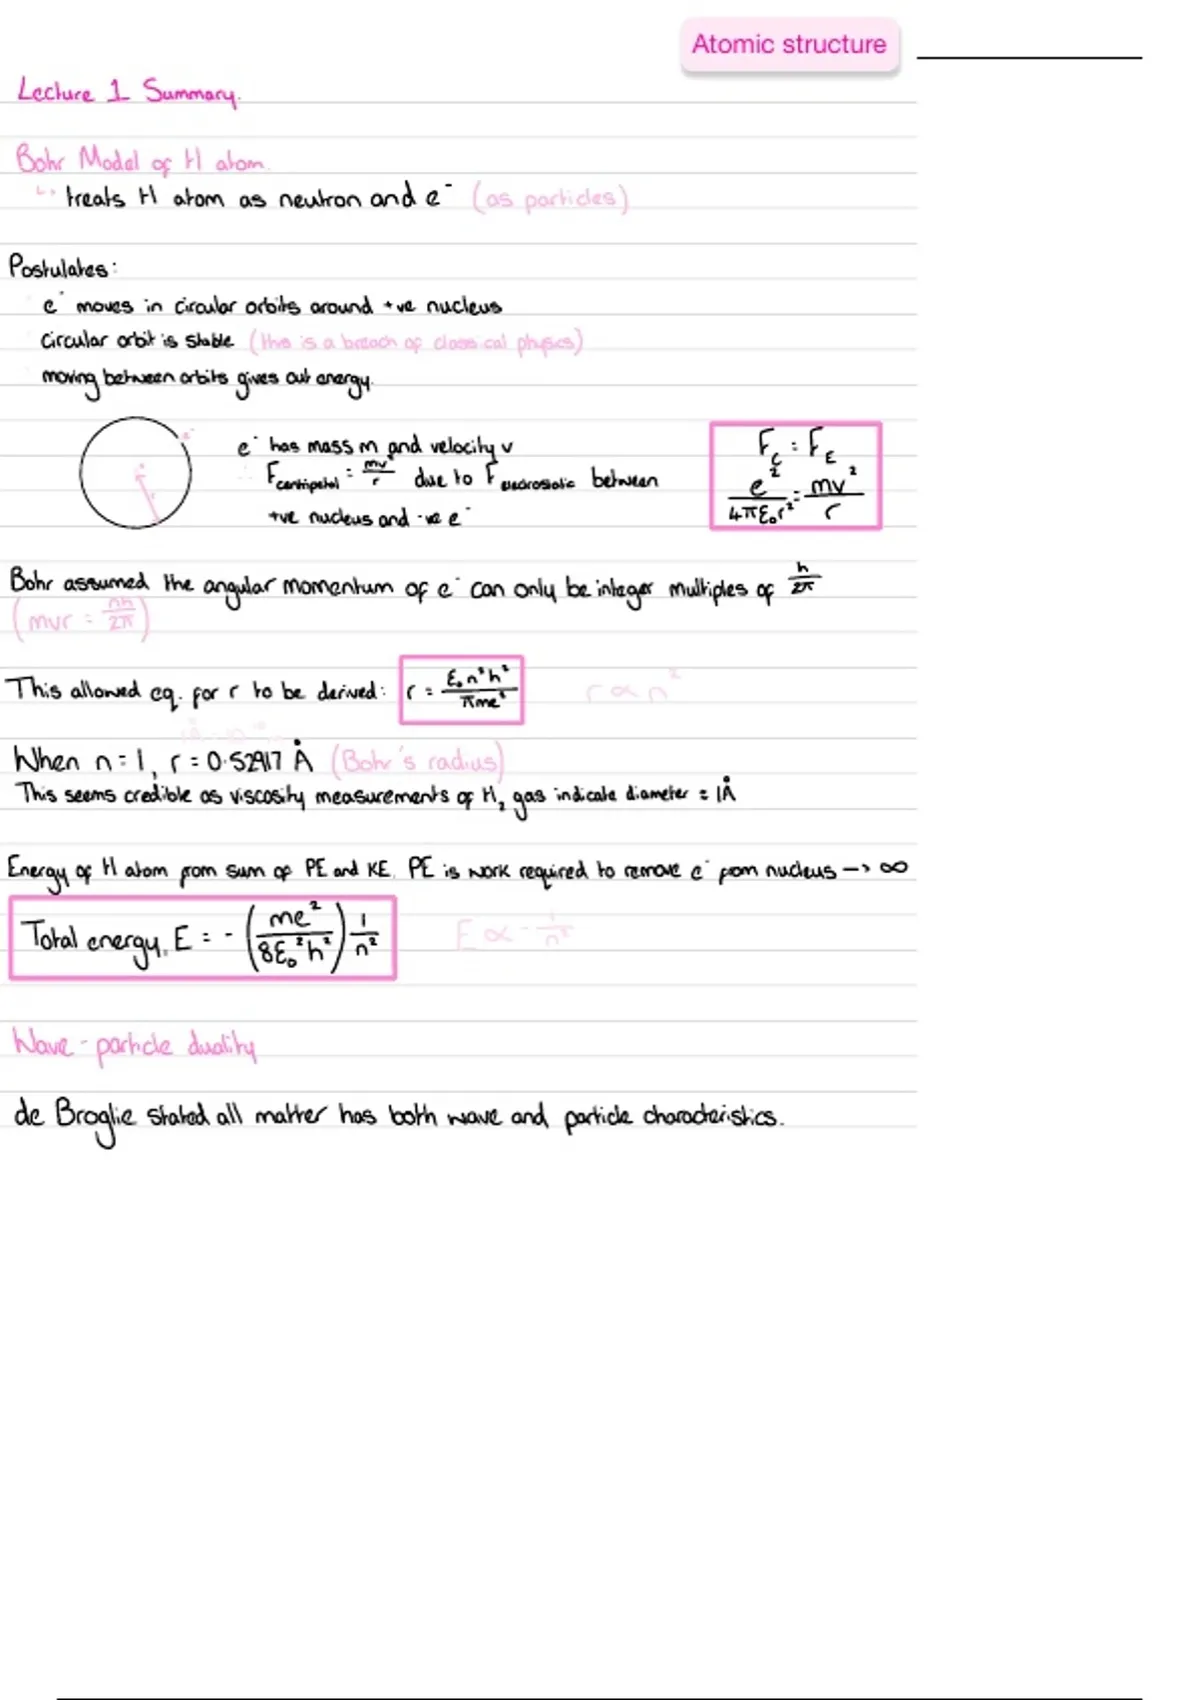 Atomic structure
Lecture 1 Summary.
Bohr Model of H atom.
↳ treats H atom as neutron and e⁻ (as particles)
Postulates:
e⁻ moves in circular orbits around +ve nucleus
circular orbit is stable (this is a breach of classical physics)
moving between orbits gives out energy.
e⁻
r
e⁻ has mass m and velocity v
F centripetal = mv²/r due to F electrostatic between
+ve nucleus and -ve e⁻
F_c = F_E
e²/4πε₀r² = mv²/r
Bohr assumed the angular momentum of e⁻ can only be integer multiples of h/2π
(mvr = nh/2π)
This allowed eq. for r to be derived: r = ε₀n²h²/πme² r ∝ n²
When n = 1, r = 0.52917 Å (Bohr's radius)
This seems credible as viscosity measurements of H₂ gas indicate diameter = 1Å
Energy of H atom from sum of PE and KE. PE is work required to remove e⁻ from nucleus → ∞
Total energy, E = - (me²/8ε₀²h²) 1/n² E ∝ - 1/n²
Wave-particle duality
de Broglie stated all matter has both wave and particle characteristics.